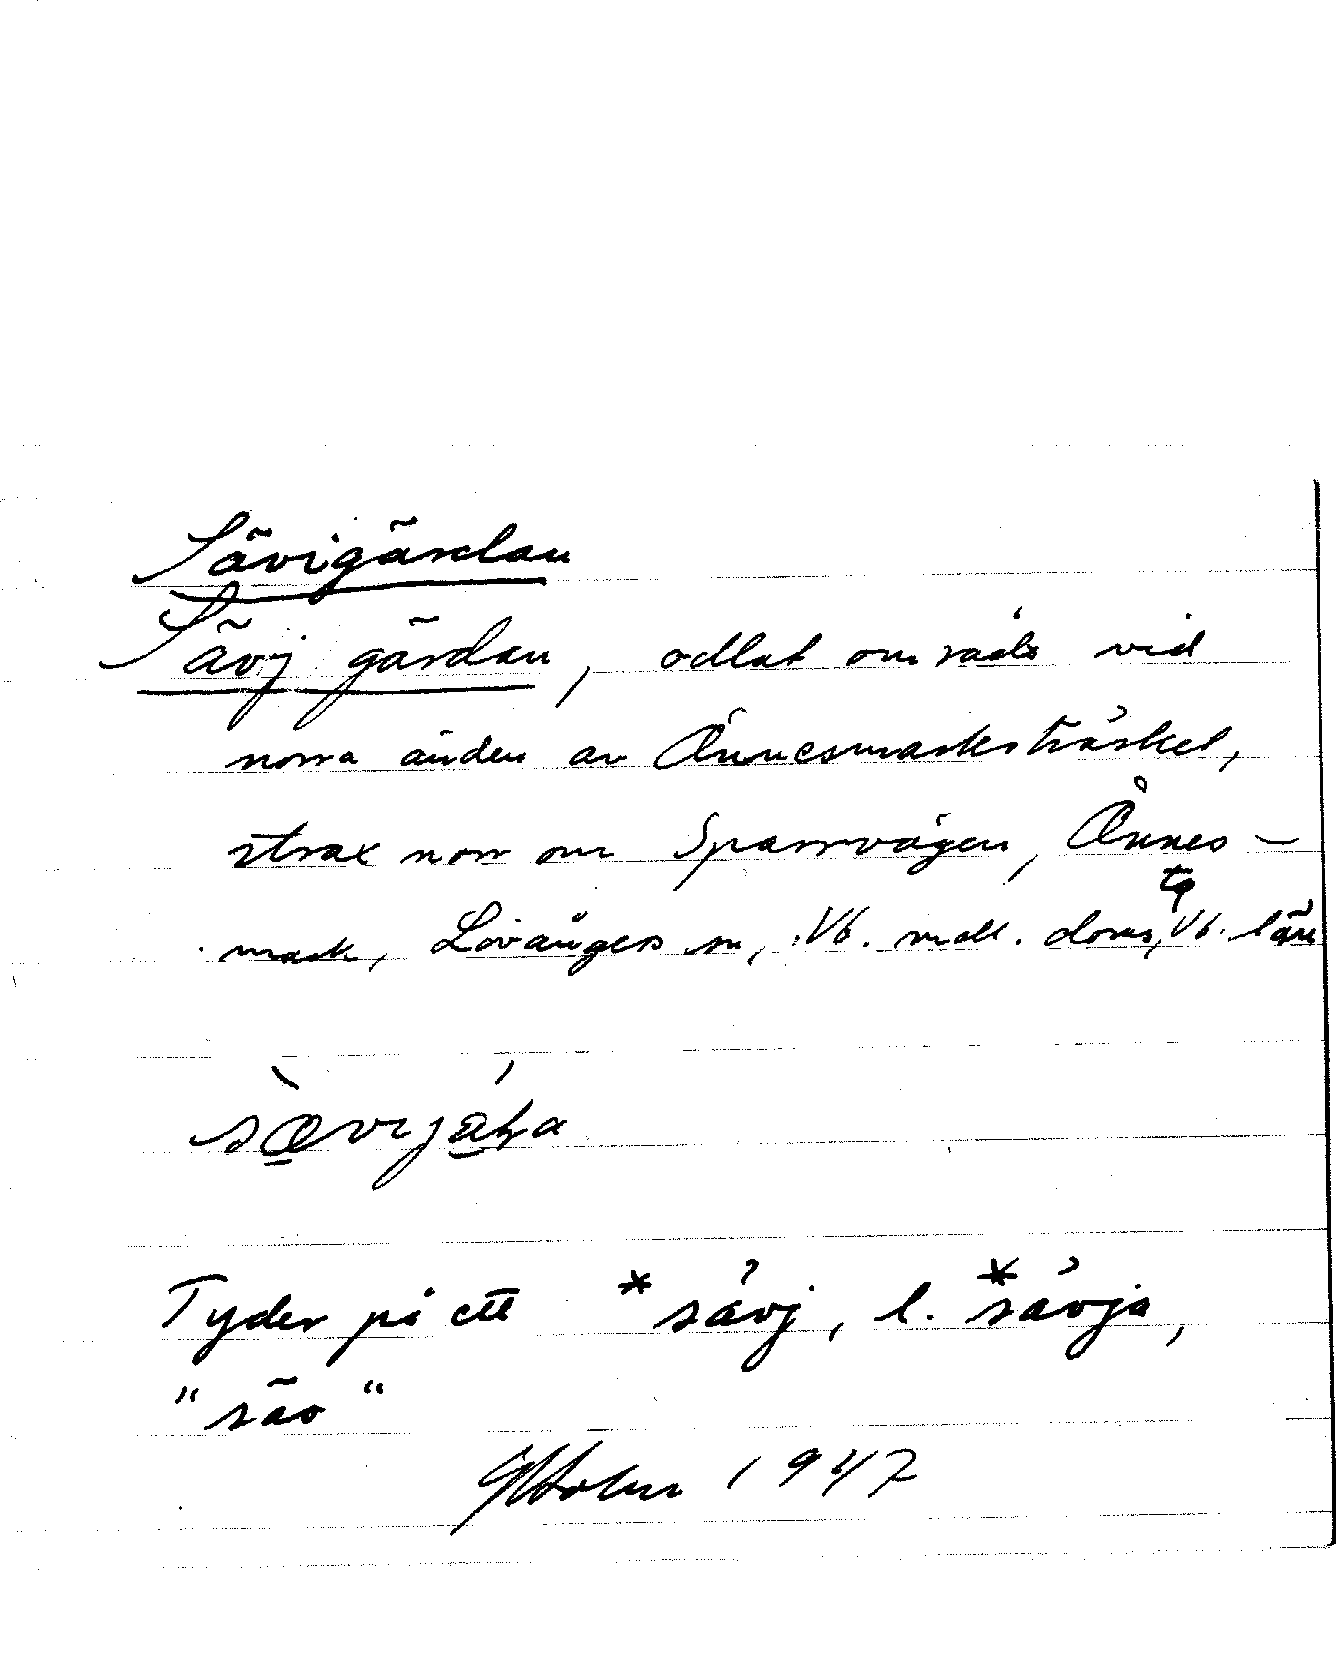 Sävigärdan
Sävj gärdan, odlat område vid
norra änden av Önnesmarksträsket,
strax norr om Sparrvägen, Önnes-
mark, Lövångers sn, Vb. mell. doms. tg Vb. län
sævɩjæ̀ḷa
Tyder på ett *sävj, l. *sävja,
"säv"
G Holm 1947